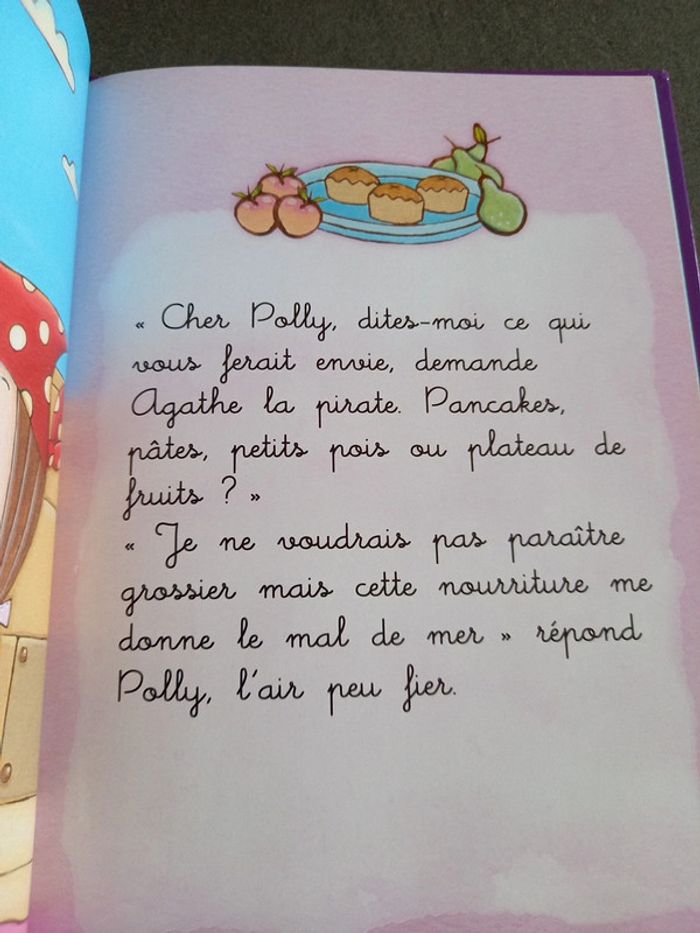 « Cher Polly, dites-moi ce qui
vous ferait envie, demande
Agathe la pirate. Pancakes,
pâtes, petits pois ou plateau de
fruits ? »
« Je ne voudrais pas paraître
grossier mais cette nourriture me
donne le mal de mer » répond
Polly, l'air peu fier.